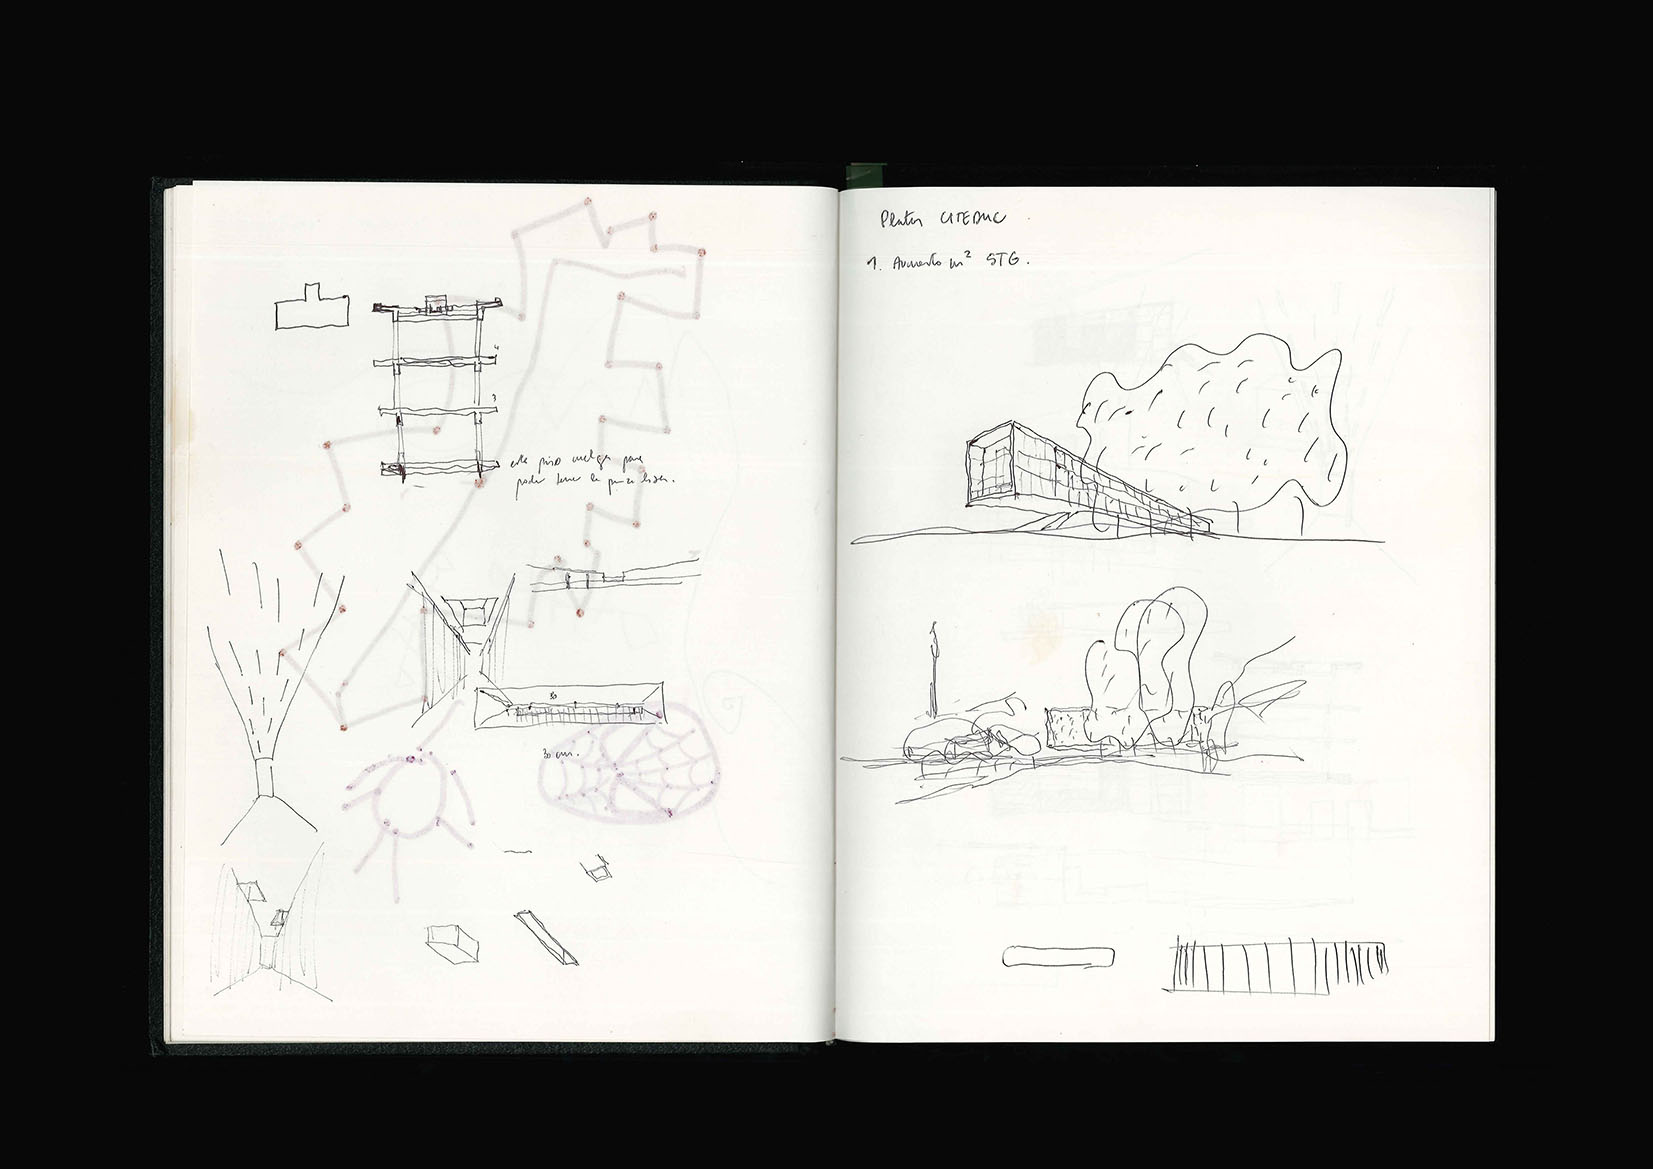 4
3
este piso cuelga para
poder tener la pieza
30
30 cm.
CITEDUC
1. Aumento m² STG.